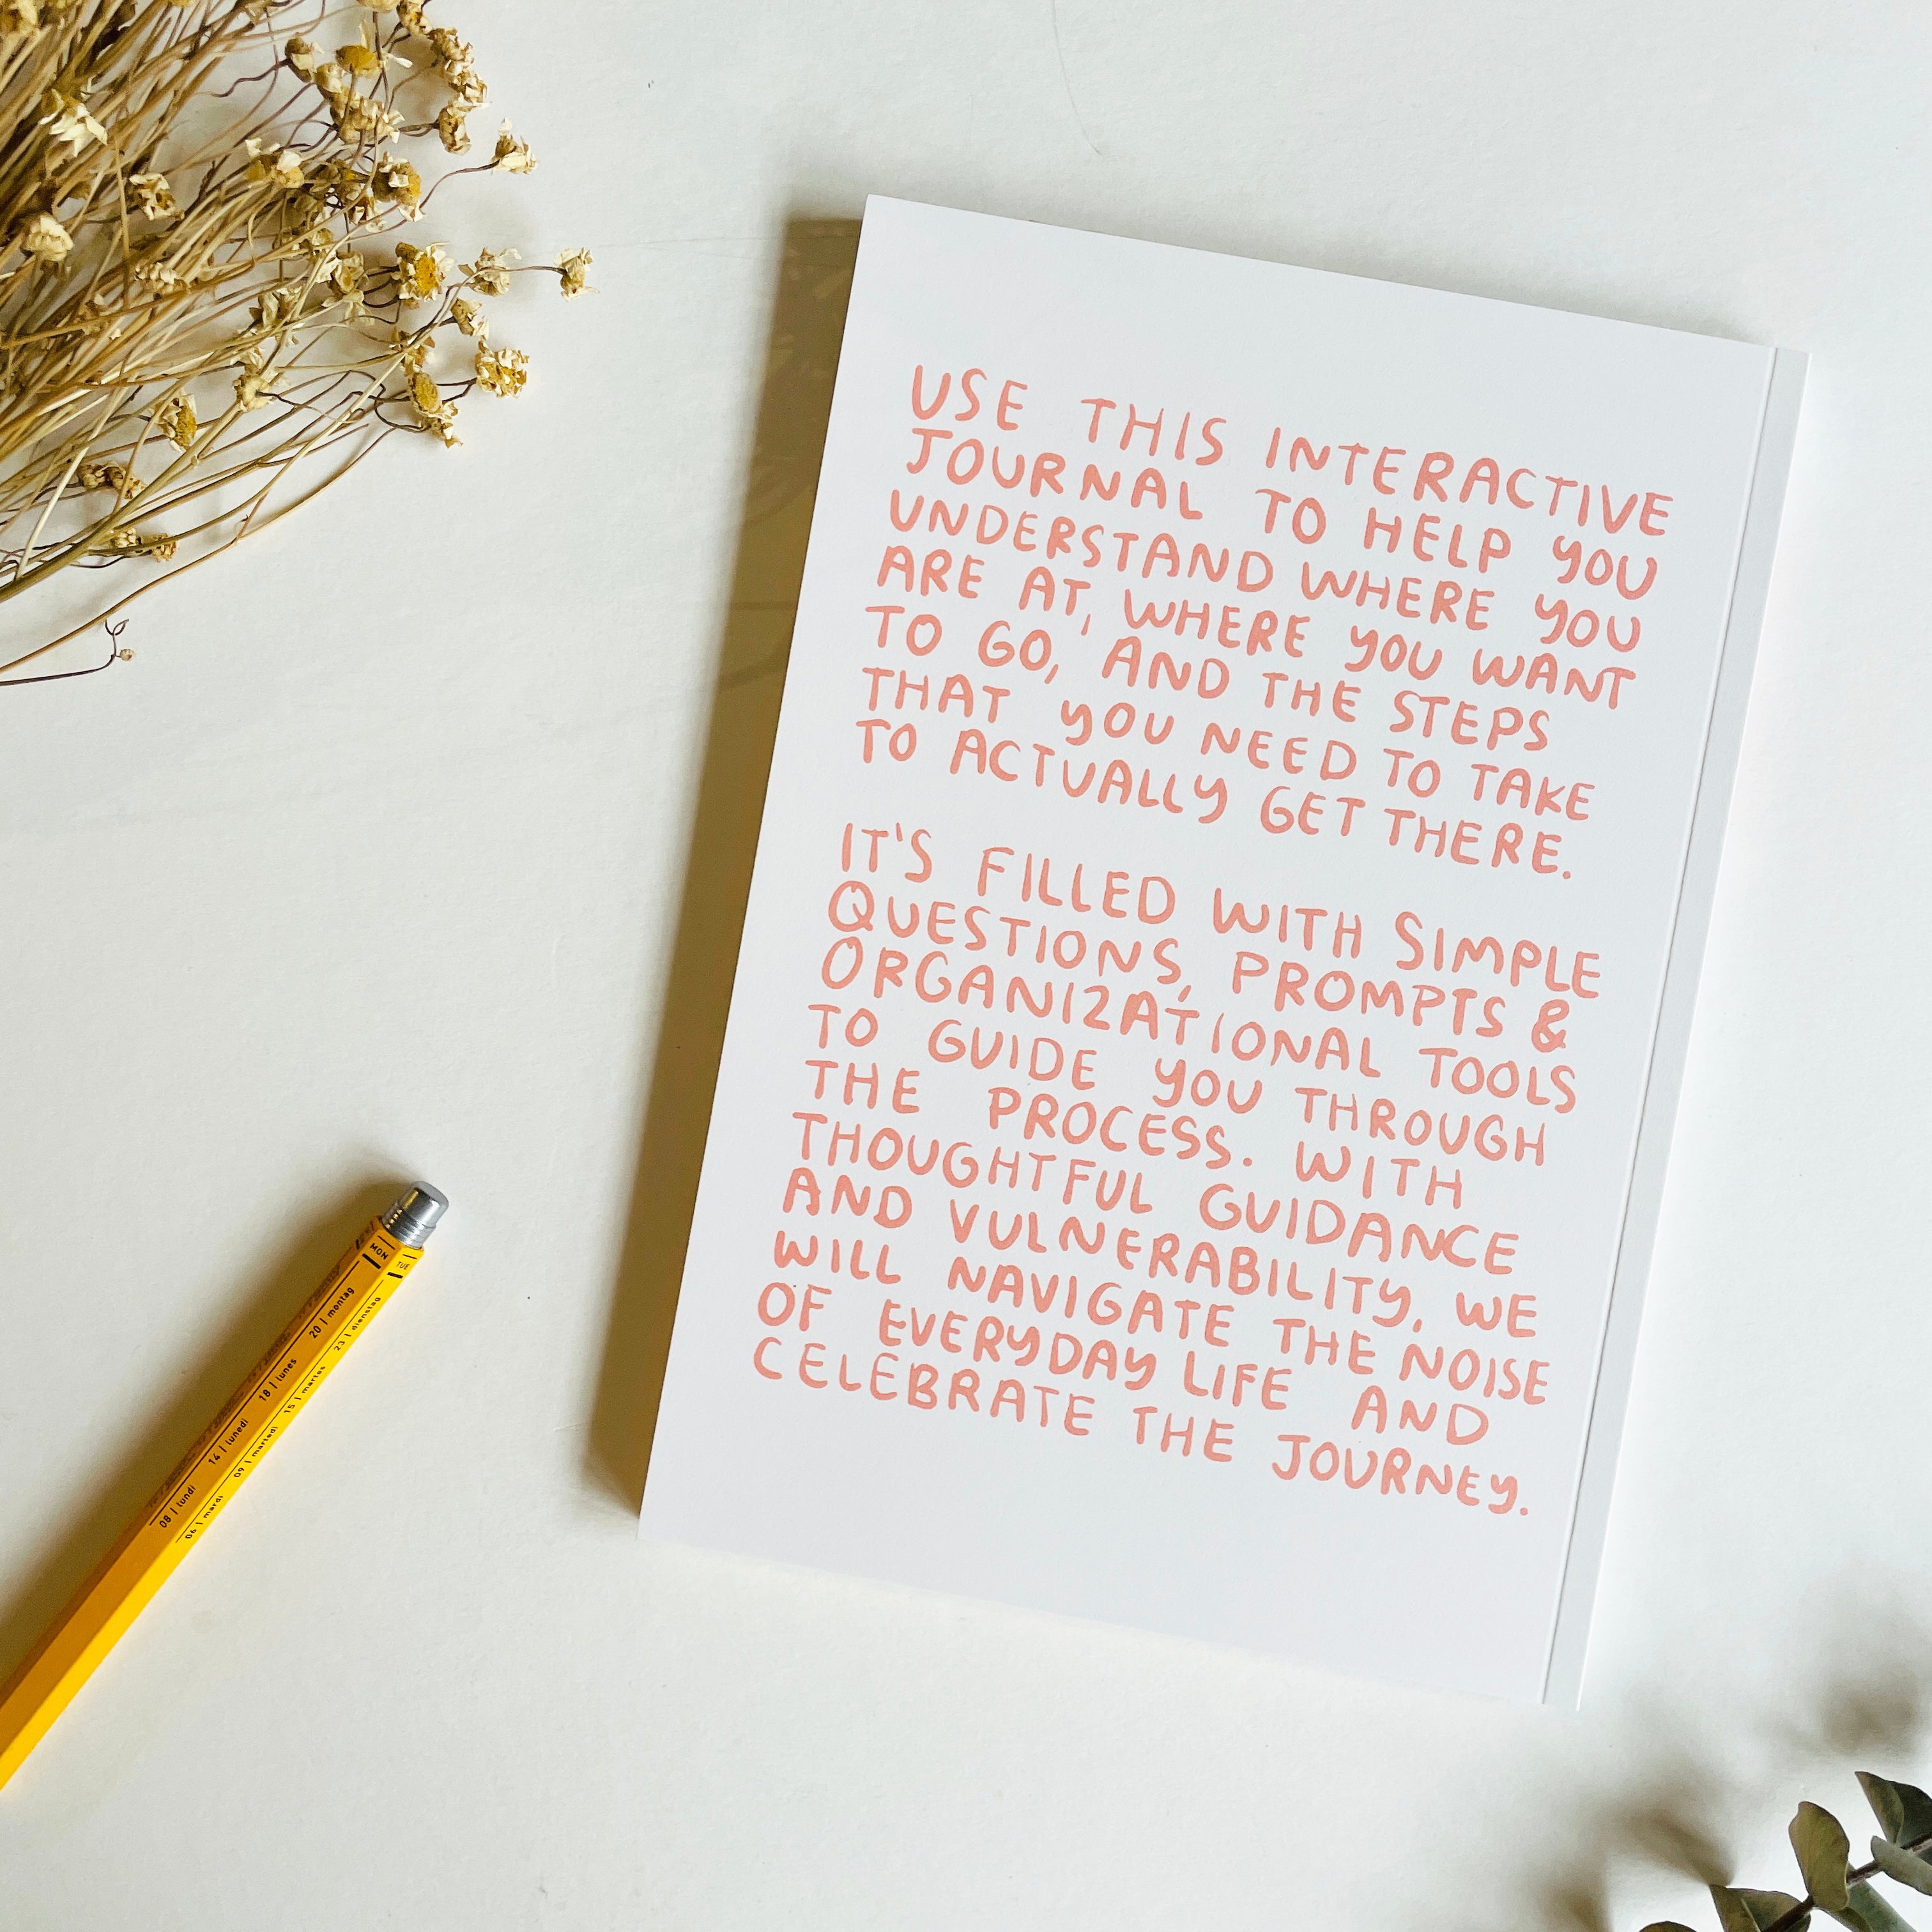 USE THIS INTERACTIVE
JOURNAL TO HELP YOU
UNDERSTAND WHERE YOU
ARE AT, WHERE YOU WANT
TO GO, AND THE STEPS
THAT YOU NEED TO TAKE
TO ACTUALLY GET THERE.
IT'S FILLED WITH SIMPLE
QUESTIONS, PROMPTS &
ORGANIZATIONAL TOOLS
TO GUIDE YOU THROUGH
THE PROCESS. WITH
THOUGHTFUL GUIDANCE
AND VULNERABILITY, WE
WILL NAVIGATE THE NOISE
OF EVERYDAY LIFE AND
CELEBRATE THE JOURNEY.
MON
TUE
08 | lundi 14 | lunedi 18 | lunes 20 | montag
06 | mardi 09 | martedi 15 | martes 23 | dienstag